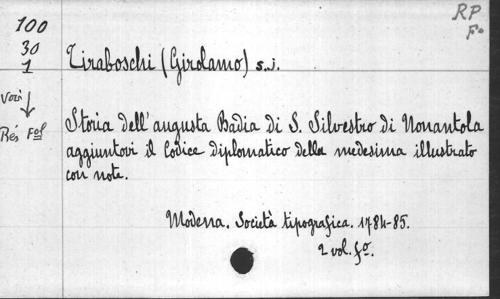 100
30
1
Voir
Rés Fol
RP
Fo
Tiraboschi (Girolamo) s.j.
Storia dell'augusta Badia di S. Silvestro di Nonantola
aggiuntovi il Codice diplomatico della medesima illustrato
con note.
Modena. Società tipografica. 1784-85.
2 vol. fo.